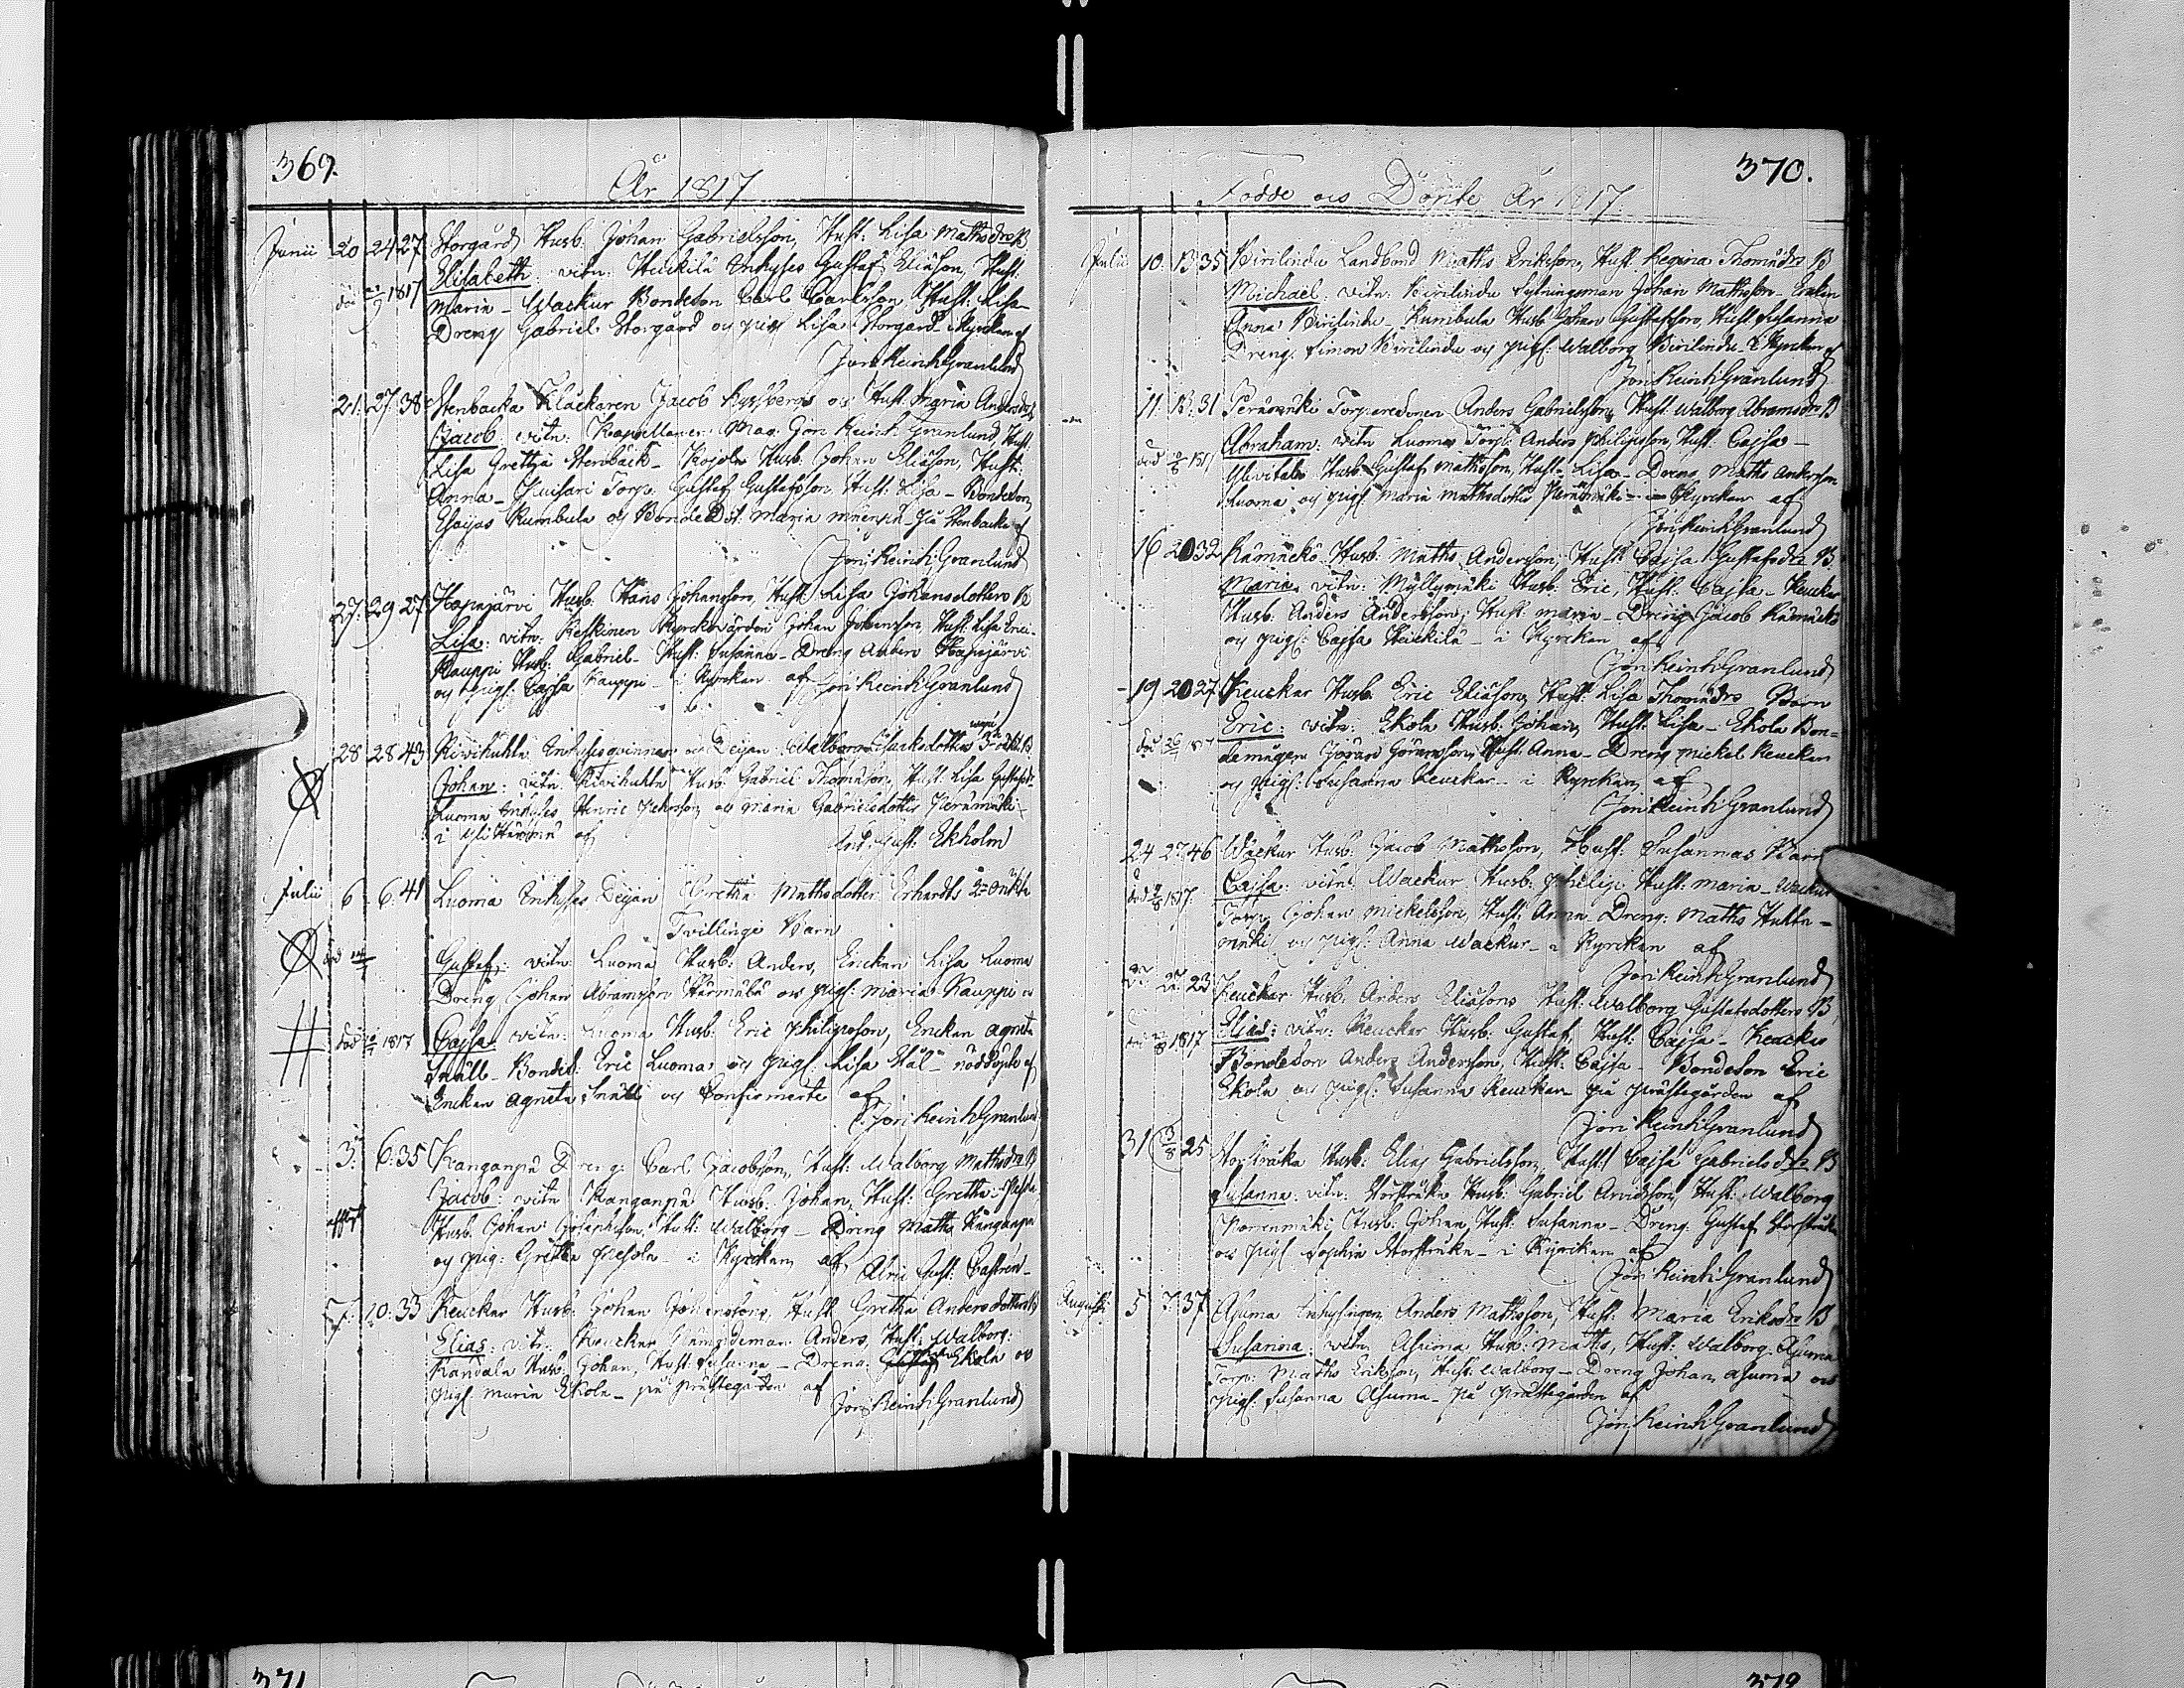 369.
År 1817
Junii 20 24 27 Storgård Husb: Johan Gabrielsson, Hust: Lisa Mathsdrs B
Elisabeth: vitn: Heickilä Inhyses Gustaf Eliäson, Hust:
död 1817 Maria - Wackur Bondeson Carl Carlsson, Hust: Lisa
Dreng Gabriel Storgård och pig: Lisa Storgård i Kyrckan af
Jon: Reinh: Granlund
21. 27. 38 Stenbacka Klåckaren Jacob och Hust: Maria Andersdrs
Jacob: vitn: Kapellanen Mag: Jon: Reinh: Granlund, Hust:
Lisa Gretha Stenbäck - Kojola Husb: Johan Eliäson, Hust:
Anna - Torp: Gustaf Gustafsson Hust: Lisa - Bondeson
Esajas Kumbula och Bonde Dot. Maria på Stenbacka af
Jon: Reinh: Granlund
27. 29 27. Hapajärvi Husb: Hans Johansson, Hust: Lisa Johansdotters B
Lisa: vitn: Keskinen Kyrckovärden Johan Johansson, Hust: Lisa
Kauppi Husb: Gabriel - Hust: Susanna - Dreng Anders Hapajärvi
och pig: Cajsa Kauppi - i Kyrckan af Jon: Reinh: Granlund
28 28 43 Kivihuhta Inhysesqvinnan och Deijan Walborg Isaksdotters
Johan: vitn: Kivihuhta Husb: Gabriel Thomäson, Hust: Lisa
Luoma Inhyses Henric Pehrsson och Maria Gabrielsdotter Perämäki
i Yli Härmä af
And: Gust: Ekholm
Julii 6 6. 41 Luoma Inhyses Deijan Gretha Mathsdotter Erhardts 2: oäkta
Tvillinge Barn
död Gustaf: vitn: Luoma Husb: Anders, Enckan Lisa Luoma
Dreng Johan Abramsson Härmälä och pig: Maria Kauppi
död 1817 Cajsa: vitn: Luoma Husb: Eric Philipsson, Enckan Agneta
Snäll - Bondes: Eric Luoma och pig: Lisa Stål - nöddöpt af
Enckan Agneta Snäll och Confirmerte af
Jon: Reinh: Granlund
3. 6. 35 Kanganpä Dreng: Carl Jacobson, Hust: Walborg Mathsdrs B
Jacob: vitn: Kanganpä Husb: Johan, Hust: Gretha - Pesola
Husb: Johan Josephsson, Hust: Walborg - Dreng Maths Kanganpä
och pig: Gretha Pesola - i Kyrckan af Alric Gust: Castrén
7. 10. 33 Keuckar Husb: Johan Johanssons, Hust: Gretha Andersdotters B
Elias: vitn: Keuckar Nämndeman Anders, Hust: Walborg:
Kandala Husb: Johan, Hust: Susanna - Dreng: Ekola och
pig: Maria Ekola - på prästegården af
Jon: Reinh: Granlund
370.
Födde och Döpte År 1817
Julii 10. 13. 35 Birilinda Landbond Maths Eriksson, Hust: Regina Thomädrs B
Michaël: vitn: Birilinda Sytningsman Johan Mathsson - Enkan
Anna Birilinda, Kumbula Husb: Johan Gustafsson, Hust: Susanna
Dreng: Simon Birilinda och pig: Walborg Birilinda - i Kyrckan af
Jon: Reinh: Granlund
11. 13. 31 Perämäki Torparesonen Anders Gabrielsson, Hust: Walborg Abramsdrs B
Abraham: vitn: Luoma Torp: Anders Philipsson, Hust: Cajsa -
död 1817 Ylivitala Husb: Gustaf Mathsson, Hust: Lisa - Dreng Maths Andersson
Luoma och pig: Maria Mathsdotter Perämäki - i Kyrckan af
Jon: Reinh: Granlund
16 20 32 Kämäckö Husb: Maths Andersson, Hust: Cajsa Gustafsdrs B.
Maria: vitn: Myllymäki Husb: Eric, Hust: Cajsa - Keuckar
Husb: Anders Andersson, Hust: Maria - Dreng Jacob Kämäckö
och pig: Cajsa Heickilä - i Kyrckan af
Jon: Reinh: Granlund
19 20 27 Keuckar Husb: Eric Eliäson, Hust: Lisa Thomädrs Barn
Eric: vitn: Ekola Husb: Johan, Hust: Lisa - Ekola Bon=
död demågen Jöran Göransson, Hust: Anna - Dreng Mickel Keuckar
och pig: Susanna Keuckar - i Kyrckan af
Jon: Reinh: Granlund
24 27 46 Wackur Husb: Jacob Mathsson, Hust: Susannas Barn
död 1817. Cajsa: vitn: Wackur Husb: Philip Hust: Maria - Wackur
Torp: Johan Mickelsson, Hust: Anna Dreng: Maths Huhta-
mäki och pig: Anna Wackur - i Kyrckan af
Jon: Reinh: Granlund
27. 23. Keuckar Husb: Anders Eliäsons Hust: Walborg Gustafsdotters B
1817 Elias: vitn: Keuckar Husb: Gustaf, Hust: Cajsa - Keuckar
Bondeson Anders Andersson, Hust: Cajsa - Bondeson Eric
Ekola och pig: Susanna Keuckar på prästegården af
Jon: Reinh: Granlund
31 3/8 25 Storstråka Husb: Elias Gabrielsson, Hust: Cajsa Gabrielsdrs B
Susanna: vitn: Storstråka Husb: Gabriel Arvidsson, Hust: Walborg
Porrenmäki Husb: Johan, Hust: Susanna - Dreng: Gustaf Storstråka
och pig: Sophia Storstråka - i Kyrckan af
Jon: Reinh: Granlund
Augusti 5 7. 37 Asuma Inhysingen Anders Mathsson, Hust: Maria Eriksdrs B
Susanna: vitn: Asuma Husb: Maths, Hust: Walborg - Asuma
Torp: Maths Eriksson, Hust: Walborg - Dreng Johan Asuma och
pig: Susanna Asuma - på prästegården af
Jon: Reinh: Granlund
371
372